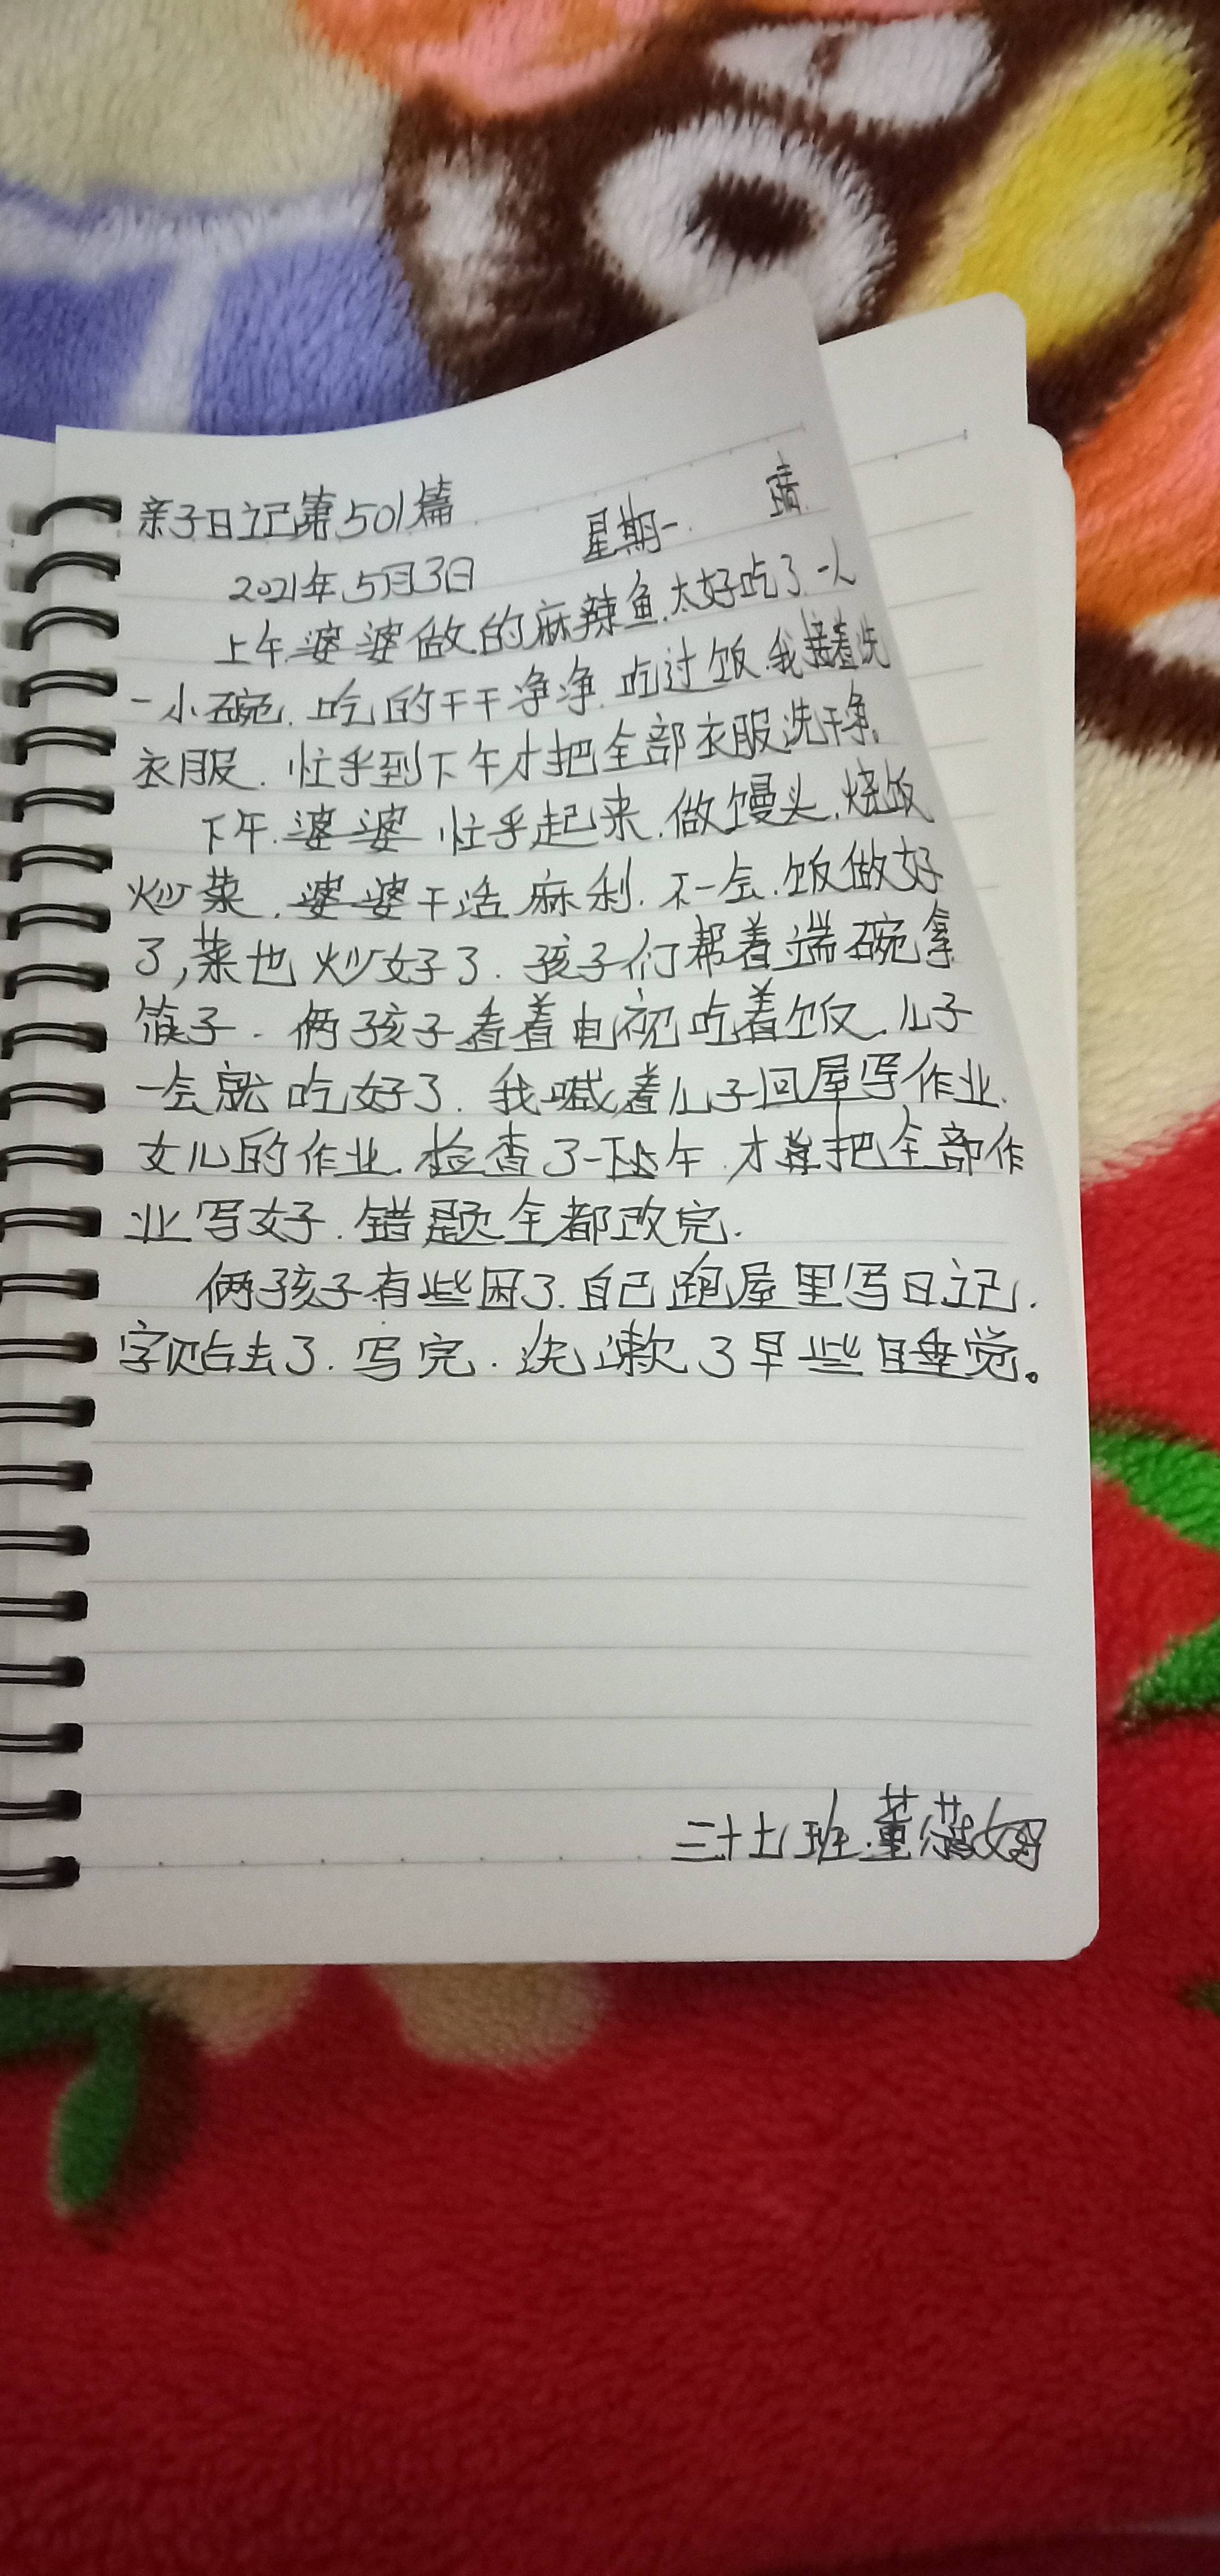 亲子日记第501篇
2021年5月3日 星期一. 晴.
上午.婆婆做的麻辣鱼.太好吃了.一人
一小碗.吃的干干净净.吃过饭.我接着洗
衣服.忙乎到下午才把全部衣服洗干净.
下午.婆婆忙乎起来.做馒头.烧饭
炒菜.婆婆干活麻利.不一会.饭做好
了,菜也炒好了.孩子们帮着端碗拿
筷子.俩孩子看着电视吃着饭.儿子
一会就吃好了.我喊着儿子回屋写作业.
女儿的作业.检查了一下午.才算把全部作
业写好.错题全都改完.
俩孩子有些困了.自己跑屋里写日记.
字贴去了.写完.洗漱了早些睡觉。
三十七班.董